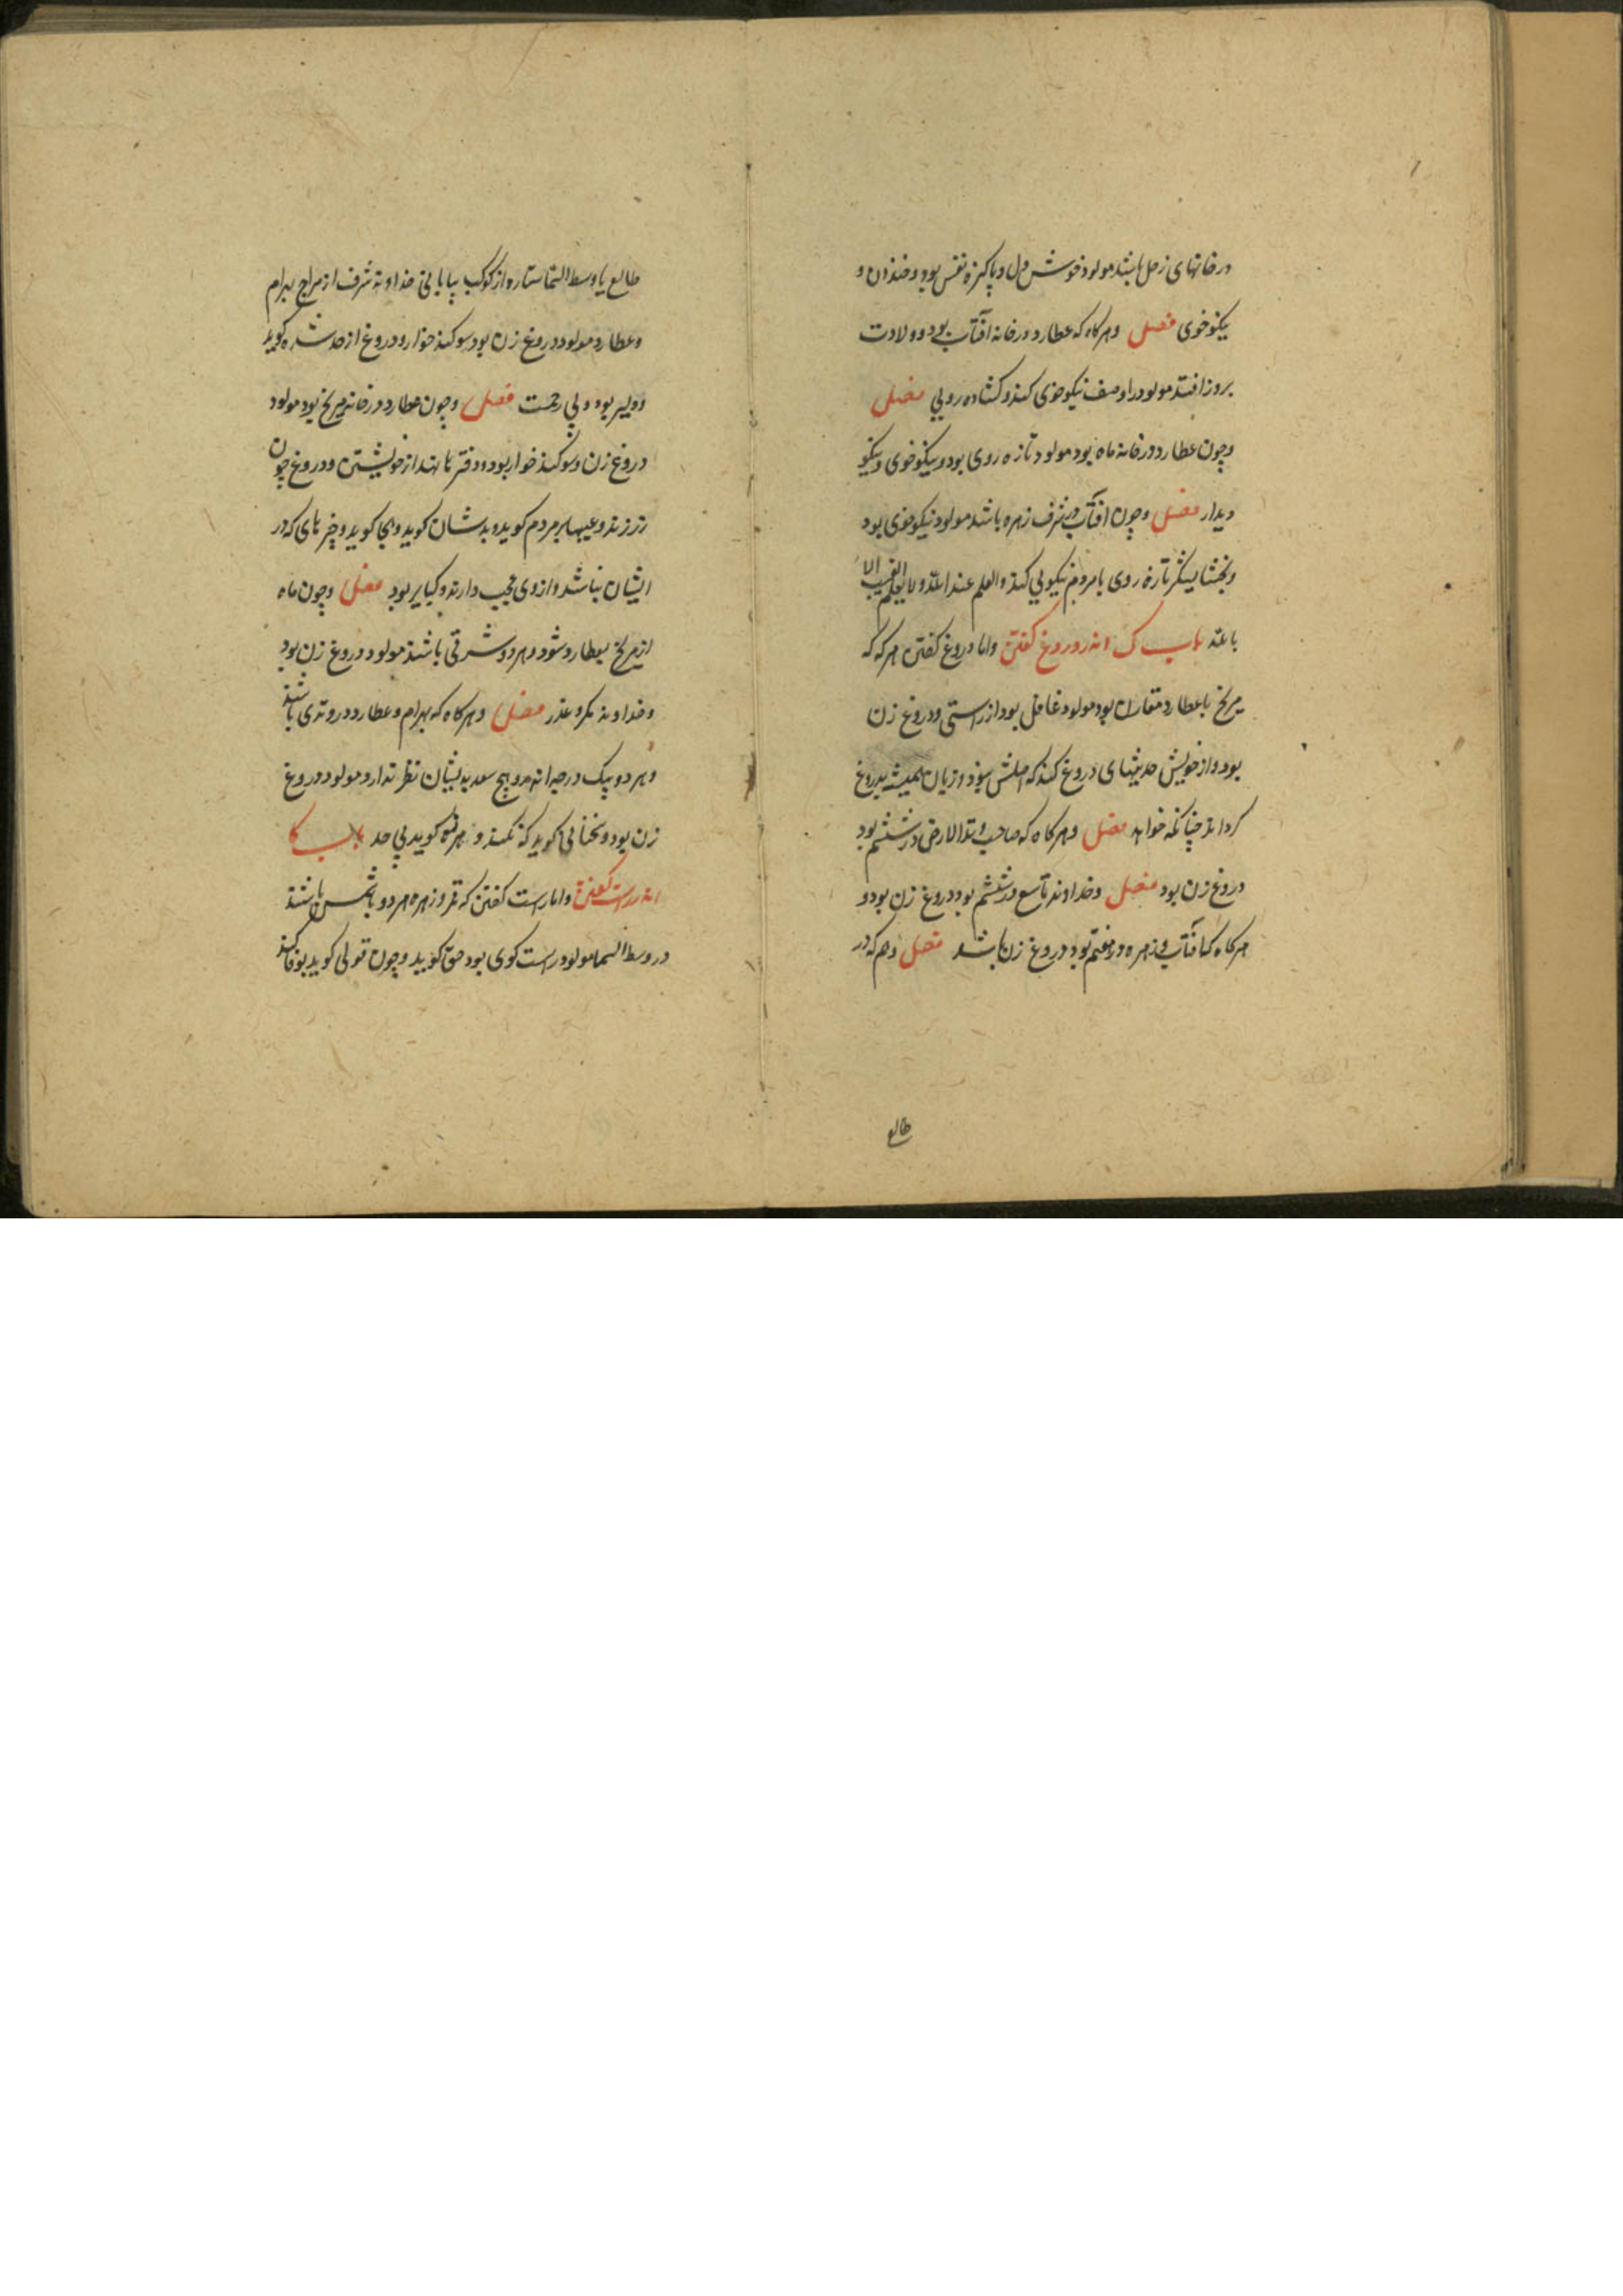 در خانهای زحل باشد مولود خوش دل و پاکیزه نفس بود و خندان و
نیکو خوی فصل و هر کاه که عطارد در خانه افتاب بود و ولادت
بروز افتد مولود را وصف نیکو خوی کند و کشاده رویی فصل
و چون عطارد در خانه ماه بود مولود تازه روی بود و نیکو خوی و نیکو
دیدار فصل و چون افتاب در شرف زهره باشد مولود نیکو خوی بود
و تازه روی با مردم نیکویی کند و العلم عند الله و لا یعلم الغیب الا
بالله باب ک اندر دروغ کفتن و اما دروغ کفتن هر که که
مریخ با عطارد مقارن بود مولود غافل بود از راستی و دروغ زن
بود و از خویش حدیثهای دروغ کند که اصلش نبود و زبان همیشه بدروغ
کرداند چنانکه خواهد فصل و هر کاه که صاحب وتد الارض در ششم بود
دروغ زن بود فصل و خداوند تاسع در ششم بود دروغ زن بود و
هر کاه که افتاب و زهره در هفتم بود دروغ زن باشد فصل و هر که در
طالع
طالع یا وسط السما ستاره از کوکب بیابانی خداوند شرف از مزاج بهرام
و عطارد مولود دروغ زن بود سوکند خوار و دروغ از حد شده کوید
و دلیر بود و بی رحمت فصل و چون عطارد در خانه مریخ بود مولود
دروغ زن و سوکند خوار بود و دفترها نهد از خویشتن و دروغ چون
زر زند و عیبها بر مردم کوید و بدشان کوید و هجا کوید و چیزهای که در
ایشان نباشد و از وی عجب دارند و کیابر بود فصل و چون ماه
از مریخ بعطارد شود و هر دو شرقی باشند مولود دروغ زن بود
و خداوند مکر و عذر فصل و هر کاه که بهرام و عطارد در وتدی باشند
و هر دو بیک درجه اند و هیچ سعد بدیشان نظر ندارد مولود دروغ
زن بود و سخنانی کوید که نکند و هر کوید بی حد باب کا
اندر راست کفتن و اما راست کفتن که قمر و زهره هر دو با شمس باشند
در وسط السما مولود راست کوی بود حق کوید و چون قولی کوید بوفا کند